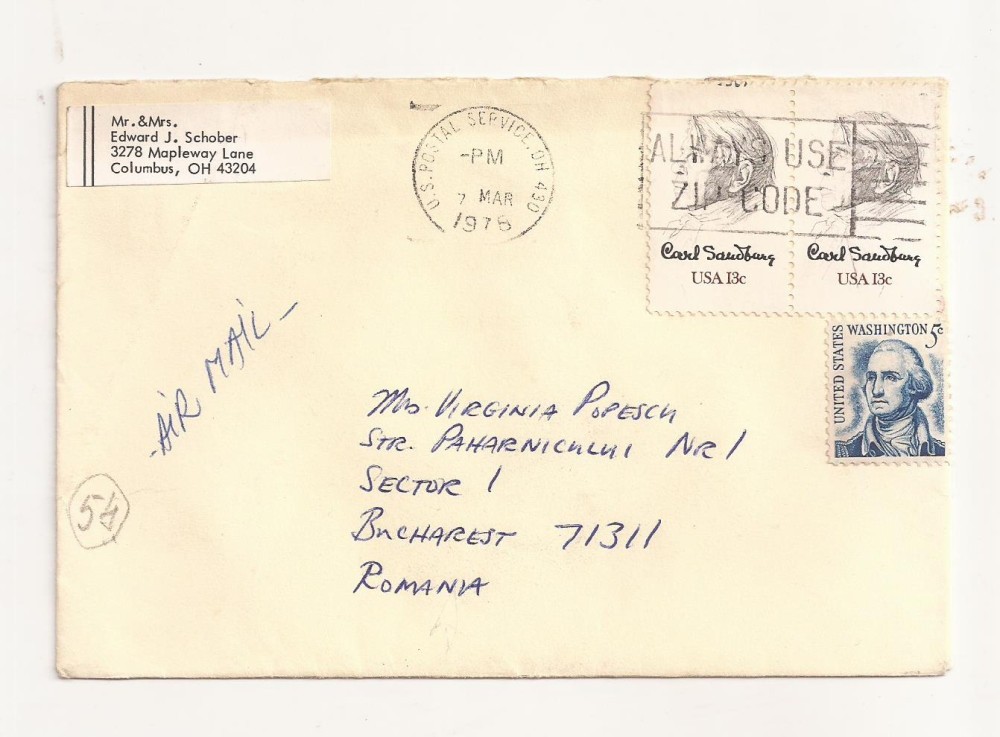 Mr.&Mrs.
Edward J. Schober
3278 Mapleway Lane
Columbus, OH 43204
U.S. POSTAL SERVICE, OH 430
-PM
7 MAR
1978
ALWAYS USE
ZIP CODE
Carl Sandburg
USA 13c
Carl Sandburg
USA 13c
UNITED STATES
WASHINGTON 5c
-AIR MAIL-
VIRGINIA POPESCU
STR. PAHARNICULUI NR 1
SECTOR 1
BUCHAREST 71311
ROMANIA
54